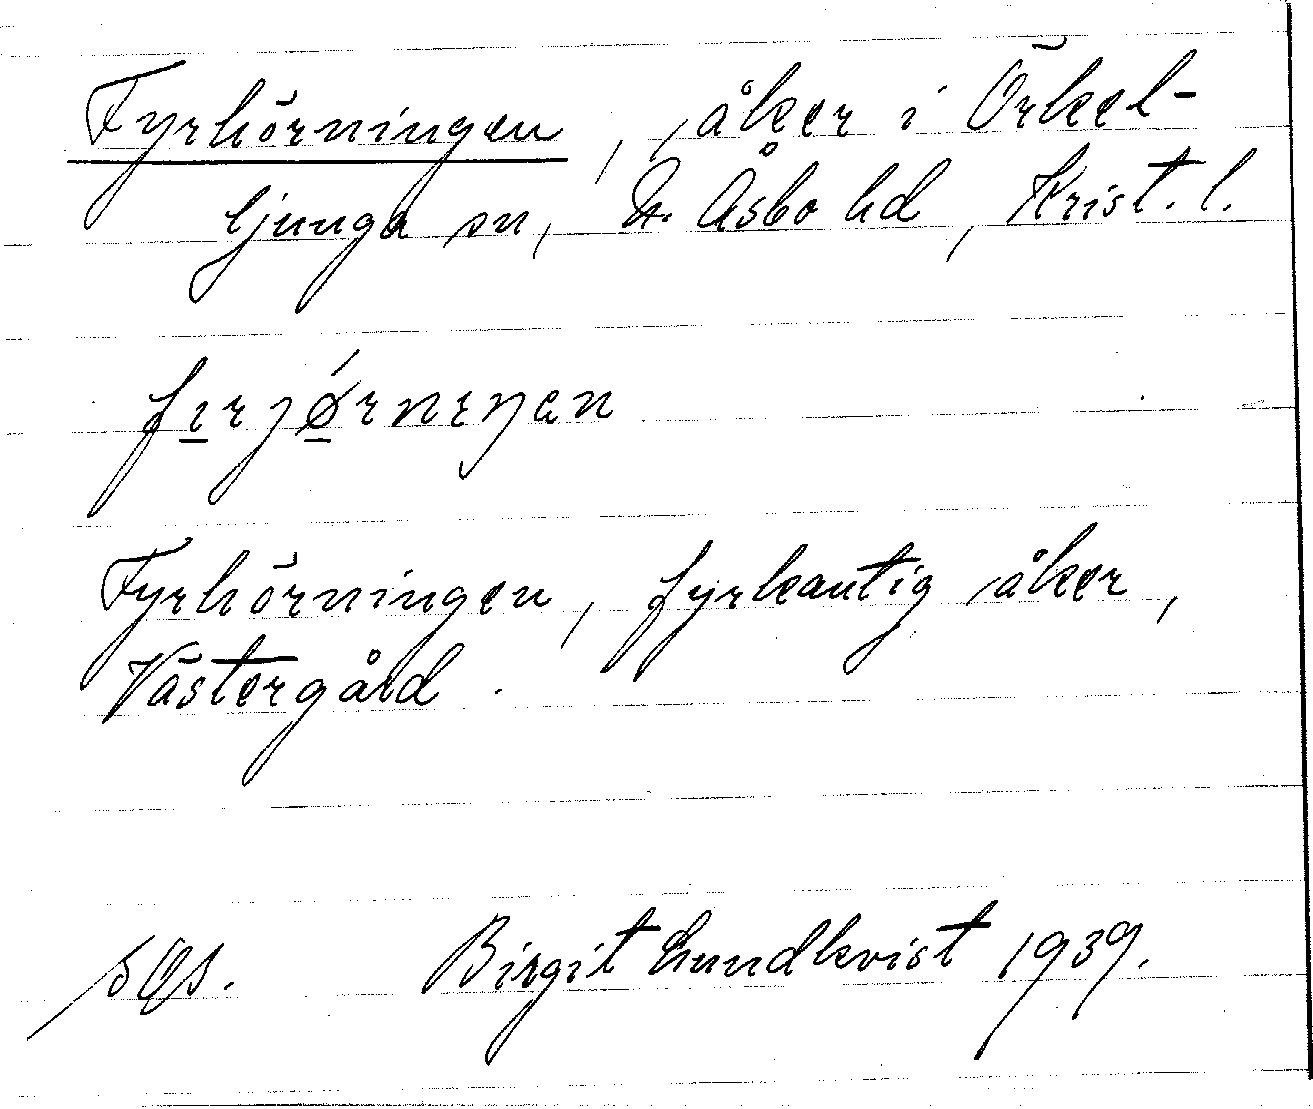 Fyrhörningen, åker i Örkel-
ljunga sn, N. Åsbo hd, Krist. l.
Fyrhörningen, fyrkantig åker,
Västergård.
Birgit Lundkvist 1939.